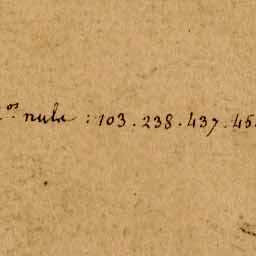 os nula : 103 . 238 . 437 . 45